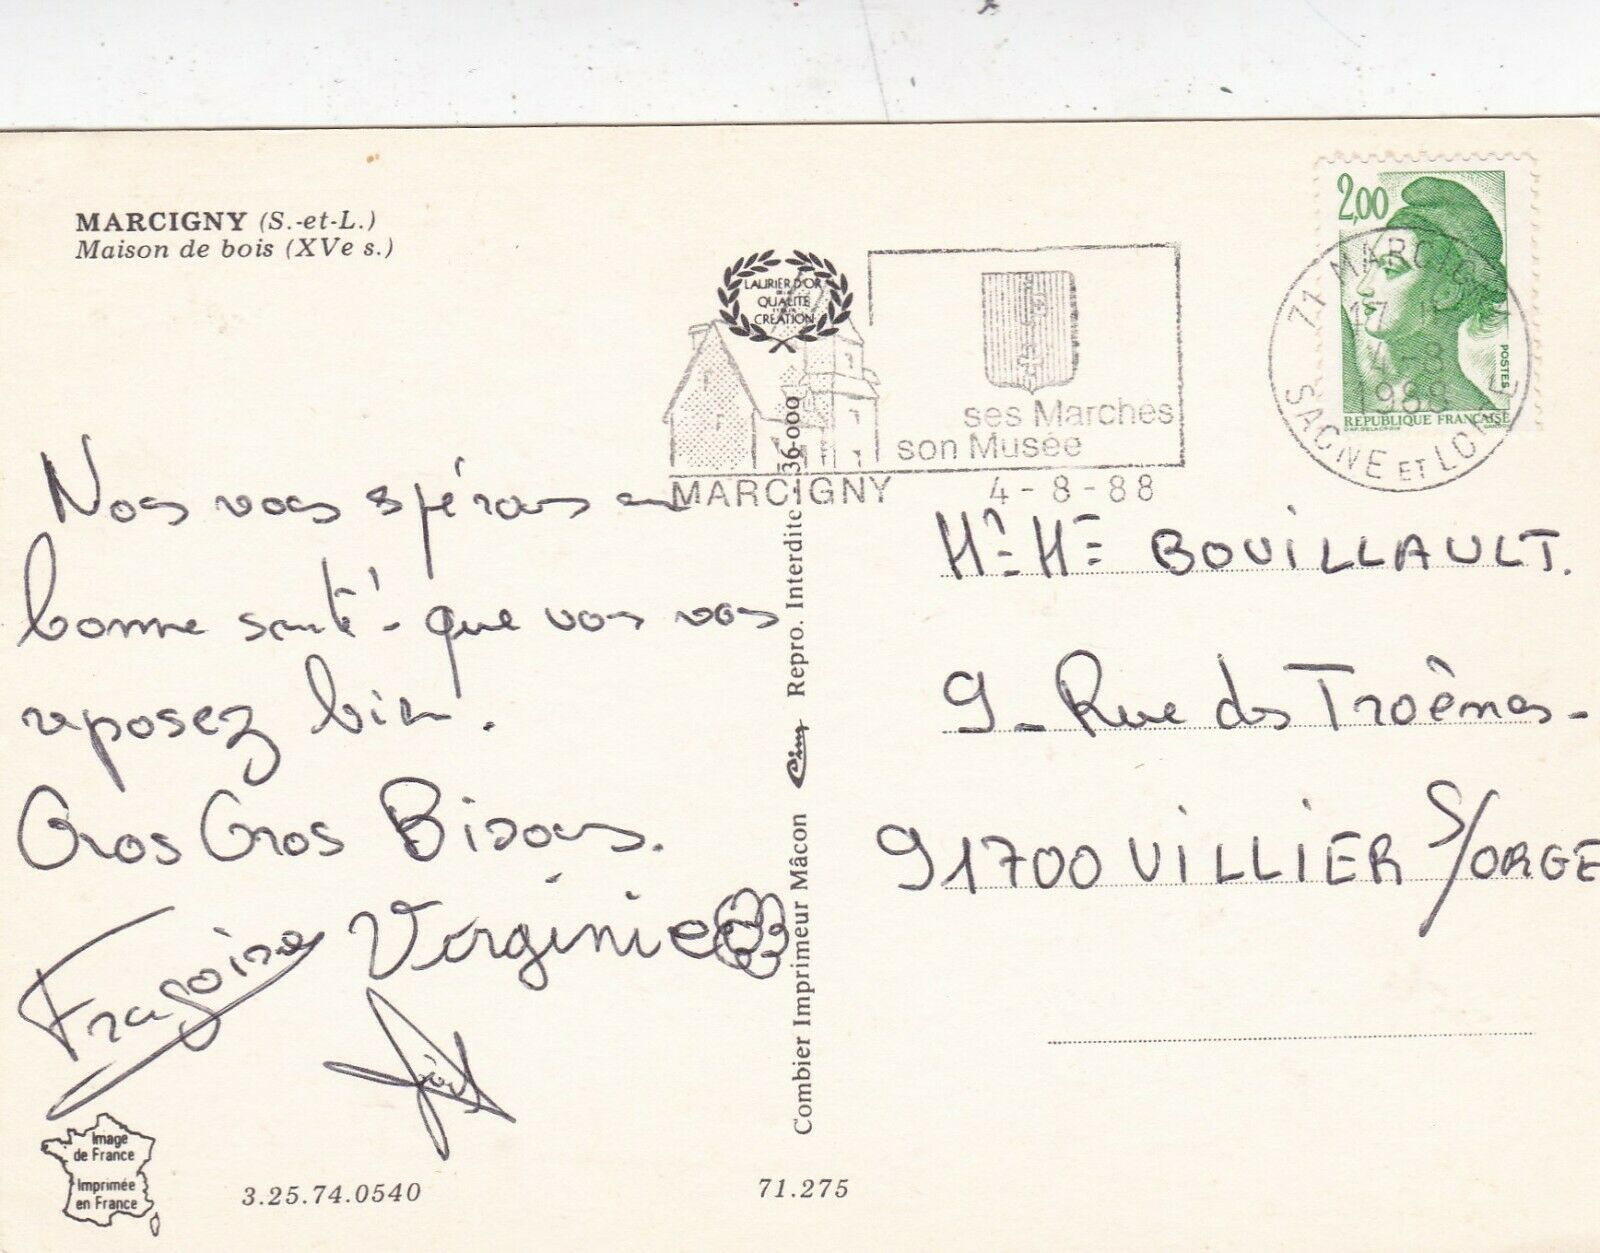 MARCIGNY (S.-et-L.)
Maison de bois (XVe s.)
LAURIER D'OR
DE LA
QUALITÉ
CRÉATION
ses Marchés
son Musée
MARCIGNY 4-8-88
71 MARCIGNY
17 H
4-8
1988
SAONE ET LOIRE
2,00
POSTES
REPUBLIQUE FRANÇAISE
D'AP. DELACROIX GANDON
Nous vous espérons en
bonne santé - que vous vous
reposez bien.
Gros Gros Bisous.
Françoise Virginie
Mr Mme BOUILLAULT.
9 - Rue des Troênes -
91700 VILLIER S/ORGE
Combier Imprimeur Mâcon Cim Repro. Interdite 36-000
Image
de France
Imprimée
en France
3.25.74.0540
71.275